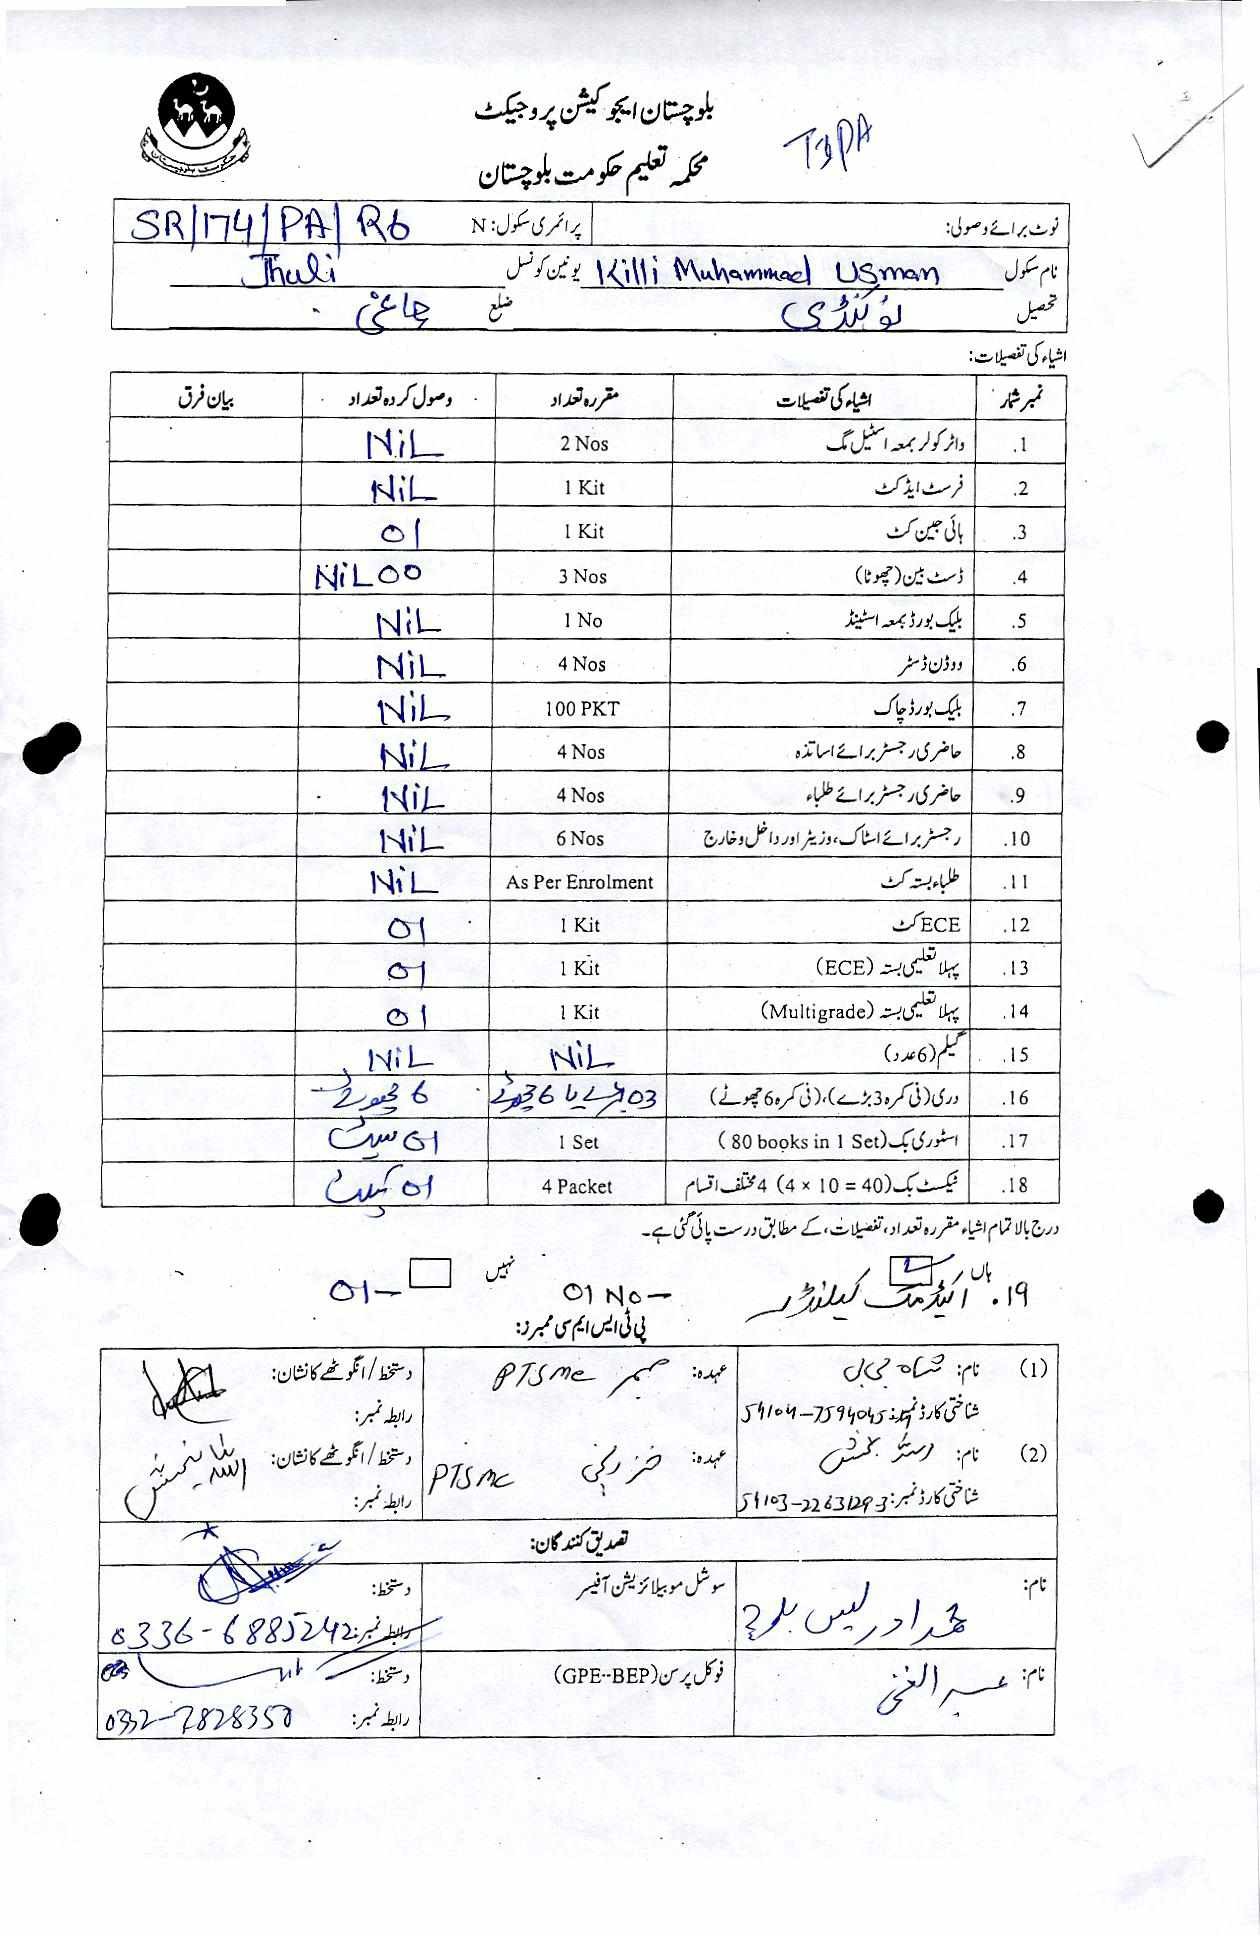 بلوچستان ایجوکیشن پروجیکٹ
محکمہ تعلیم حکومت بلوچستان
T3PA
نوٹ برائے وصولی: پرائمری سکول: N SR/174/PA/R6
نام سکول Killi Muhammad Usman یونین کونسل Jhuli
تحصیل نوکنڈی ضلع چاغی
اشیاء کی تفصیلات:
نمبر شمار اشیاء کی تفصیلات مقررہ تعداد وصول کردہ تعداد بیان فرق
.1 واٹر کولر بمعہ اسٹیل مگ 2 Nos NiL
.2 فرسٹ ایڈ کٹ 1 Kit NiL
.3 ہائی جین کٹ 1 Kit 01
.4 ڈسٹ بین (چھوٹا) 3 Nos NiL 00
.5 بلیک بورڈ بمعہ اسٹینڈ 1 No NiL
.6 ووڈن ڈسٹر 4 Nos NiL
.7 بلیک بورڈ چاک 100 PKT NiL
.8 حاضری رجسٹر برائے اساتذہ 4 Nos NiL
.9 حاضری رجسٹر برائے طلباء 4 Nos NiL
.10 رجسٹر برائے اسٹاک، وزیٹر اور داخل و خارج 6 Nos NiL
.11 طلباء بستہ کٹ As Per Enrolment NiL
.12 ECE کٹ 1 Kit 01
.13 پہلا تعلیمی بستہ (ECE) 1 Kit 01
.14 پہلا تعلیمی بستہ (Multigrade) 1 Kit 01
.15 گیلم (6 عدد) NiL NiL
.16 دری (فی کمرہ 3 بڑے)، (فی کمرہ 6 چھوٹے) 03 بڑے یا 6 چھوٹے 6 چھوٹے
.17 اسٹوری بک (80 books in 1 Set) 1 Set 01 سیٹ
.18 ٹیکسٹ بک (4 × 10 = 40) 4 مختلف اقسام 4 Packet 01
درج بالا تمام اشیاء مقررہ تعداد، تفصیلات، کے مطابق درست پائی گئی ہے۔
ہاں نہیں
۱۹. اکیڈمک کیلنڈر 01 No – 01 –
پی ٹی ایس ایم سی ممبرز:
(1) نام: عہدہ: ممبر PTSMC دستخط / انگوٹھے کا نشان:
شناختی کارڈ نمبر: رابطہ نمبر:
(2) نام: عہدہ: PTSMC دستخط / انگوٹھے کا نشان:
شناختی کارڈ نمبر: 54103-2263129-3 رابطہ نمبر:
تصدیق کنندگان:
نام: محمد ادریس بلوچ سوشل موبیلائزیشن آفیسر دستخط:
رابطہ نمبر: 0336-6885242
نام: عبدالغنی فوکل پرسن (GPE--BEP) دستخط:
رابطہ نمبر: 0332-7828350